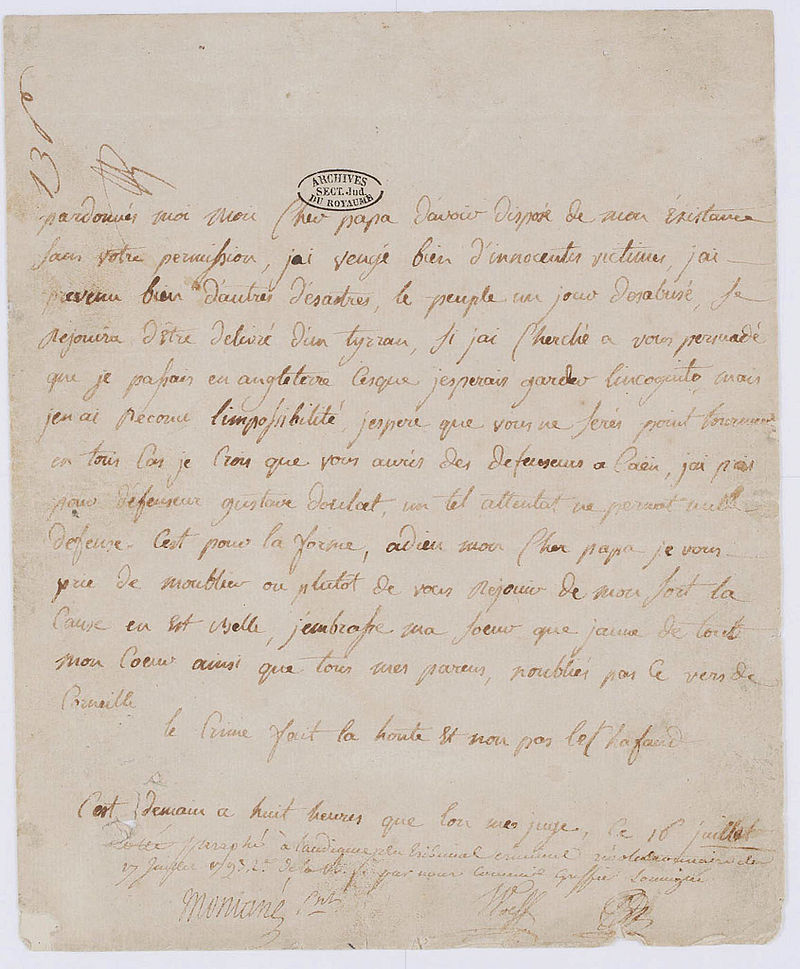 13e
ARCHIVES
SECT. Jud.
DU ROYAUME
pardonnés moi mon Cher papa d'avoir disposé de mon éxistance
sans votre permission, jai vengé bien d'innocentes victimes, jai
prevenu bien d'autres désastres, le peuple un jour désabusé, se
Rejouira d'être delivré d'un tyrran, si jai Cherché a vous persuadé
que je passais en angleterre Cesque jesperais garder lincognito, mais
jen ai Reconnu limpossibilité, jespere que vous ne serés point tourmenté
en tous Cas je Crois que vous auriés des defenseurs a Caën, jai pris
pour défenseur gustave doulcet, un tel attentat ne permet nulle
defense. C'est pour la forme, adieu mon Cher papa je vous
prie de moublier ou plutot de vous Rejouir de mon sort la
Cause en est belle, jembrasse ma soeur que jaime de tout
mon Coeur ainsi que tous mes parens, noubliés pas Ce vers de
Corneille
le Crime fait la honte et non pas lechafaud
C'est demain a huit heures que lon me juge, Ce 16 juillet
paraphé à l'audience du tribunal criminel révolutionnaire du
17 juillet 1793 2e de la par nous greffier soussigné
Montané Pnt
Wolff